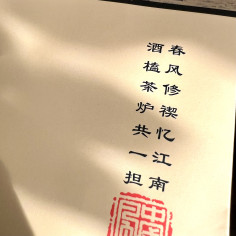 春风修禊忆江南
酒榼茶炉共一担